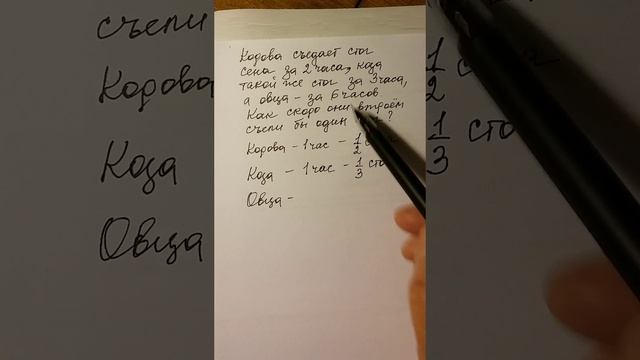 Корова съедает стог
сена за 2 часа, коза
такой же стог за 3 часа,
а овца - за 6 часов
Как скоро они втроём
съели бы один ?
Корова - 1 час - 1/2
Коза - 1 час - 1/3 сто
Овца -